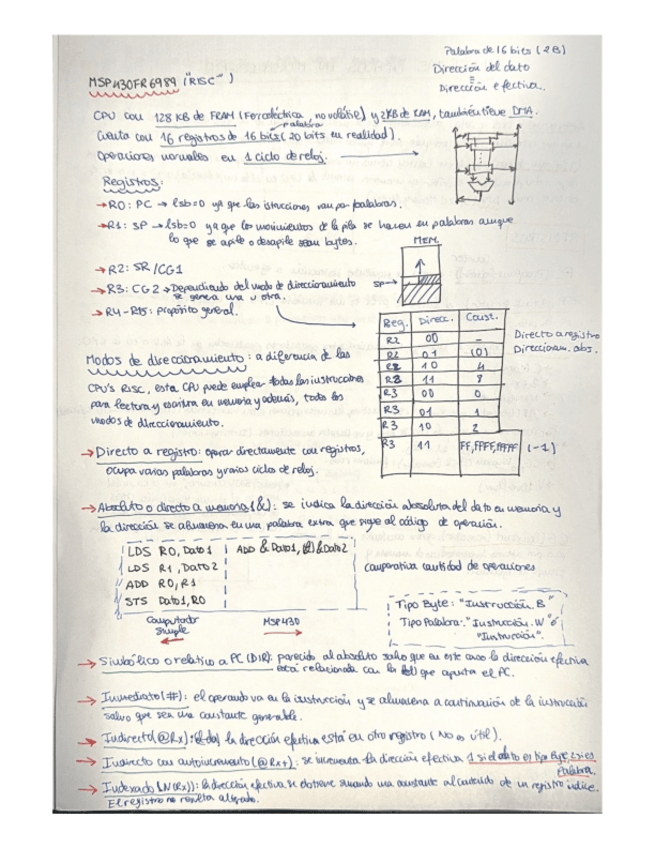 Palabra de 16 bits (2B)
Dirección del dato
=
Dirección efectiva.
MSP430FR6989 ("RISC")
CPU con 128 KB de FRAM (Ferroeléctrica, no volátil) y 2KB de RAM, también tiene DMA.
Cuenta con 16 registros de 16 bits (20 bits en realidad).
palabra
Operaciones normales en 1 ciclo de reloj.
Registros:
→ R0: PC → lsb=0 ya que las istrucciones van por palabras.
→ R1: SP → lsb=0 ya que los movimientos de la pila se hacen en palabras aunque
lo que se apile o desapile sean bytes.
MEM.
SP→
→ R2: SR/CG1
→ R3: CG2 → Dependiendo del modo de direccionamiento
se genera una u otra.
→ R4-R15: Propósito general.
Reg. Direcc. Const.
R2 00 -
R2 01 (0)
R2 10 4
R2 11 8
R3 00 0
R3 01 1
R3 10 2
R3 11 FF, FFFF, FFFFF (-1)
Directo a registro
Direccionam. abs.
Modos de direccionamiento: a diferencia de las
CPU's RISC, esta CPU puede emplear todas las instrucciones
para lectura y escritura en memoria y además, todos los
modos de direccionamiento.
→ Directo a registro: operar directamente con registros,
ocupa varias palabras y varios ciclos de reloj.
→ Absoluto o directo a memoria (&): se indica la dirección absoluta del dato en memoria y
la dirección se almacena en una palabra extra que sigue al código de operación.
LDS R0, Dato1 ADD &Dato1, &Dato2
LDS R1, Dato2
ADD R0, R1
STS Dato1, R0
comparativa cantidad de operaciones
Computador
Simple
MSP430
Tipo Byte: "Instrucción.B"
Tipo Palabra: "Instrucción.W" ó
"Instrucción".
→ Simbólico o relativo a PC (DIR): parecido al absoluto salvo que en este caso la dirección efectiva
está relacionada con la que apunta el PC.
→ Inmediato (#): el operando va en la instrucción y se almacena a continuación de la instrucción
salvo que sea una constante generable.
→ Indirecto (@Rx): la dirección efectiva está en otro registro (No es útil).
→ Indirecto con autoincremento (@Rx+): se incrementa la dirección efectiva 1 si el dato es tipo Byte, 2 si es
Palabra.
→ Indexado (N(Rx)): la dirección efectiva se obtiene sumando una constante al contenido de un registro índice.
El registro no resulta alterado.